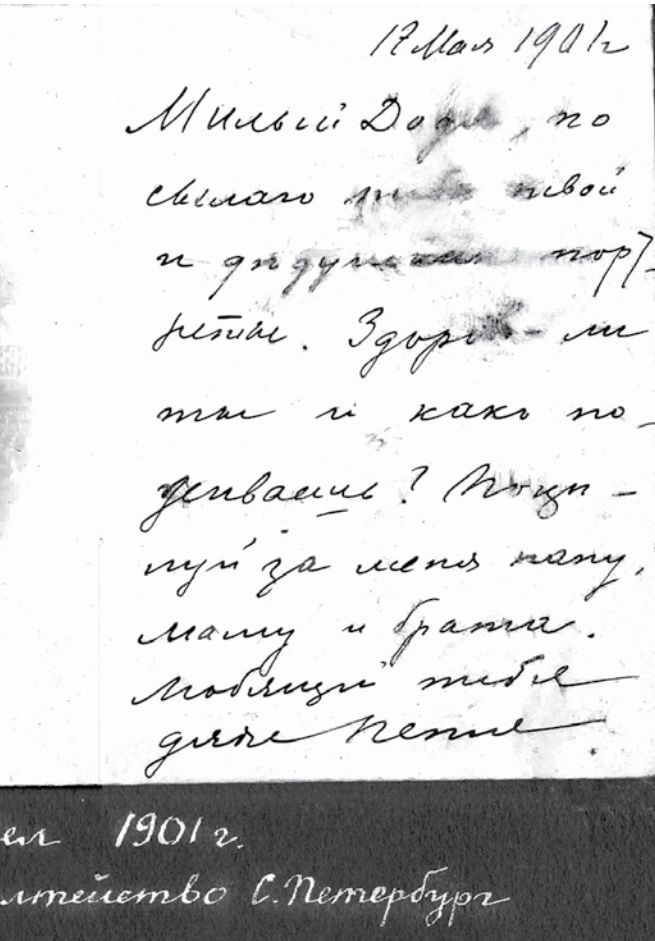 17 Мая 1901 г
Милый Додя, по
сылаю тебе твой
и дѣдушкин порт-
реты. Здоров-ли
ты и какъ по-
живаешь? Поцѣ-
луй за меня папу,
маму и брата.
Любящий тебя
дядя Петя
1901 г.
С. Петербург